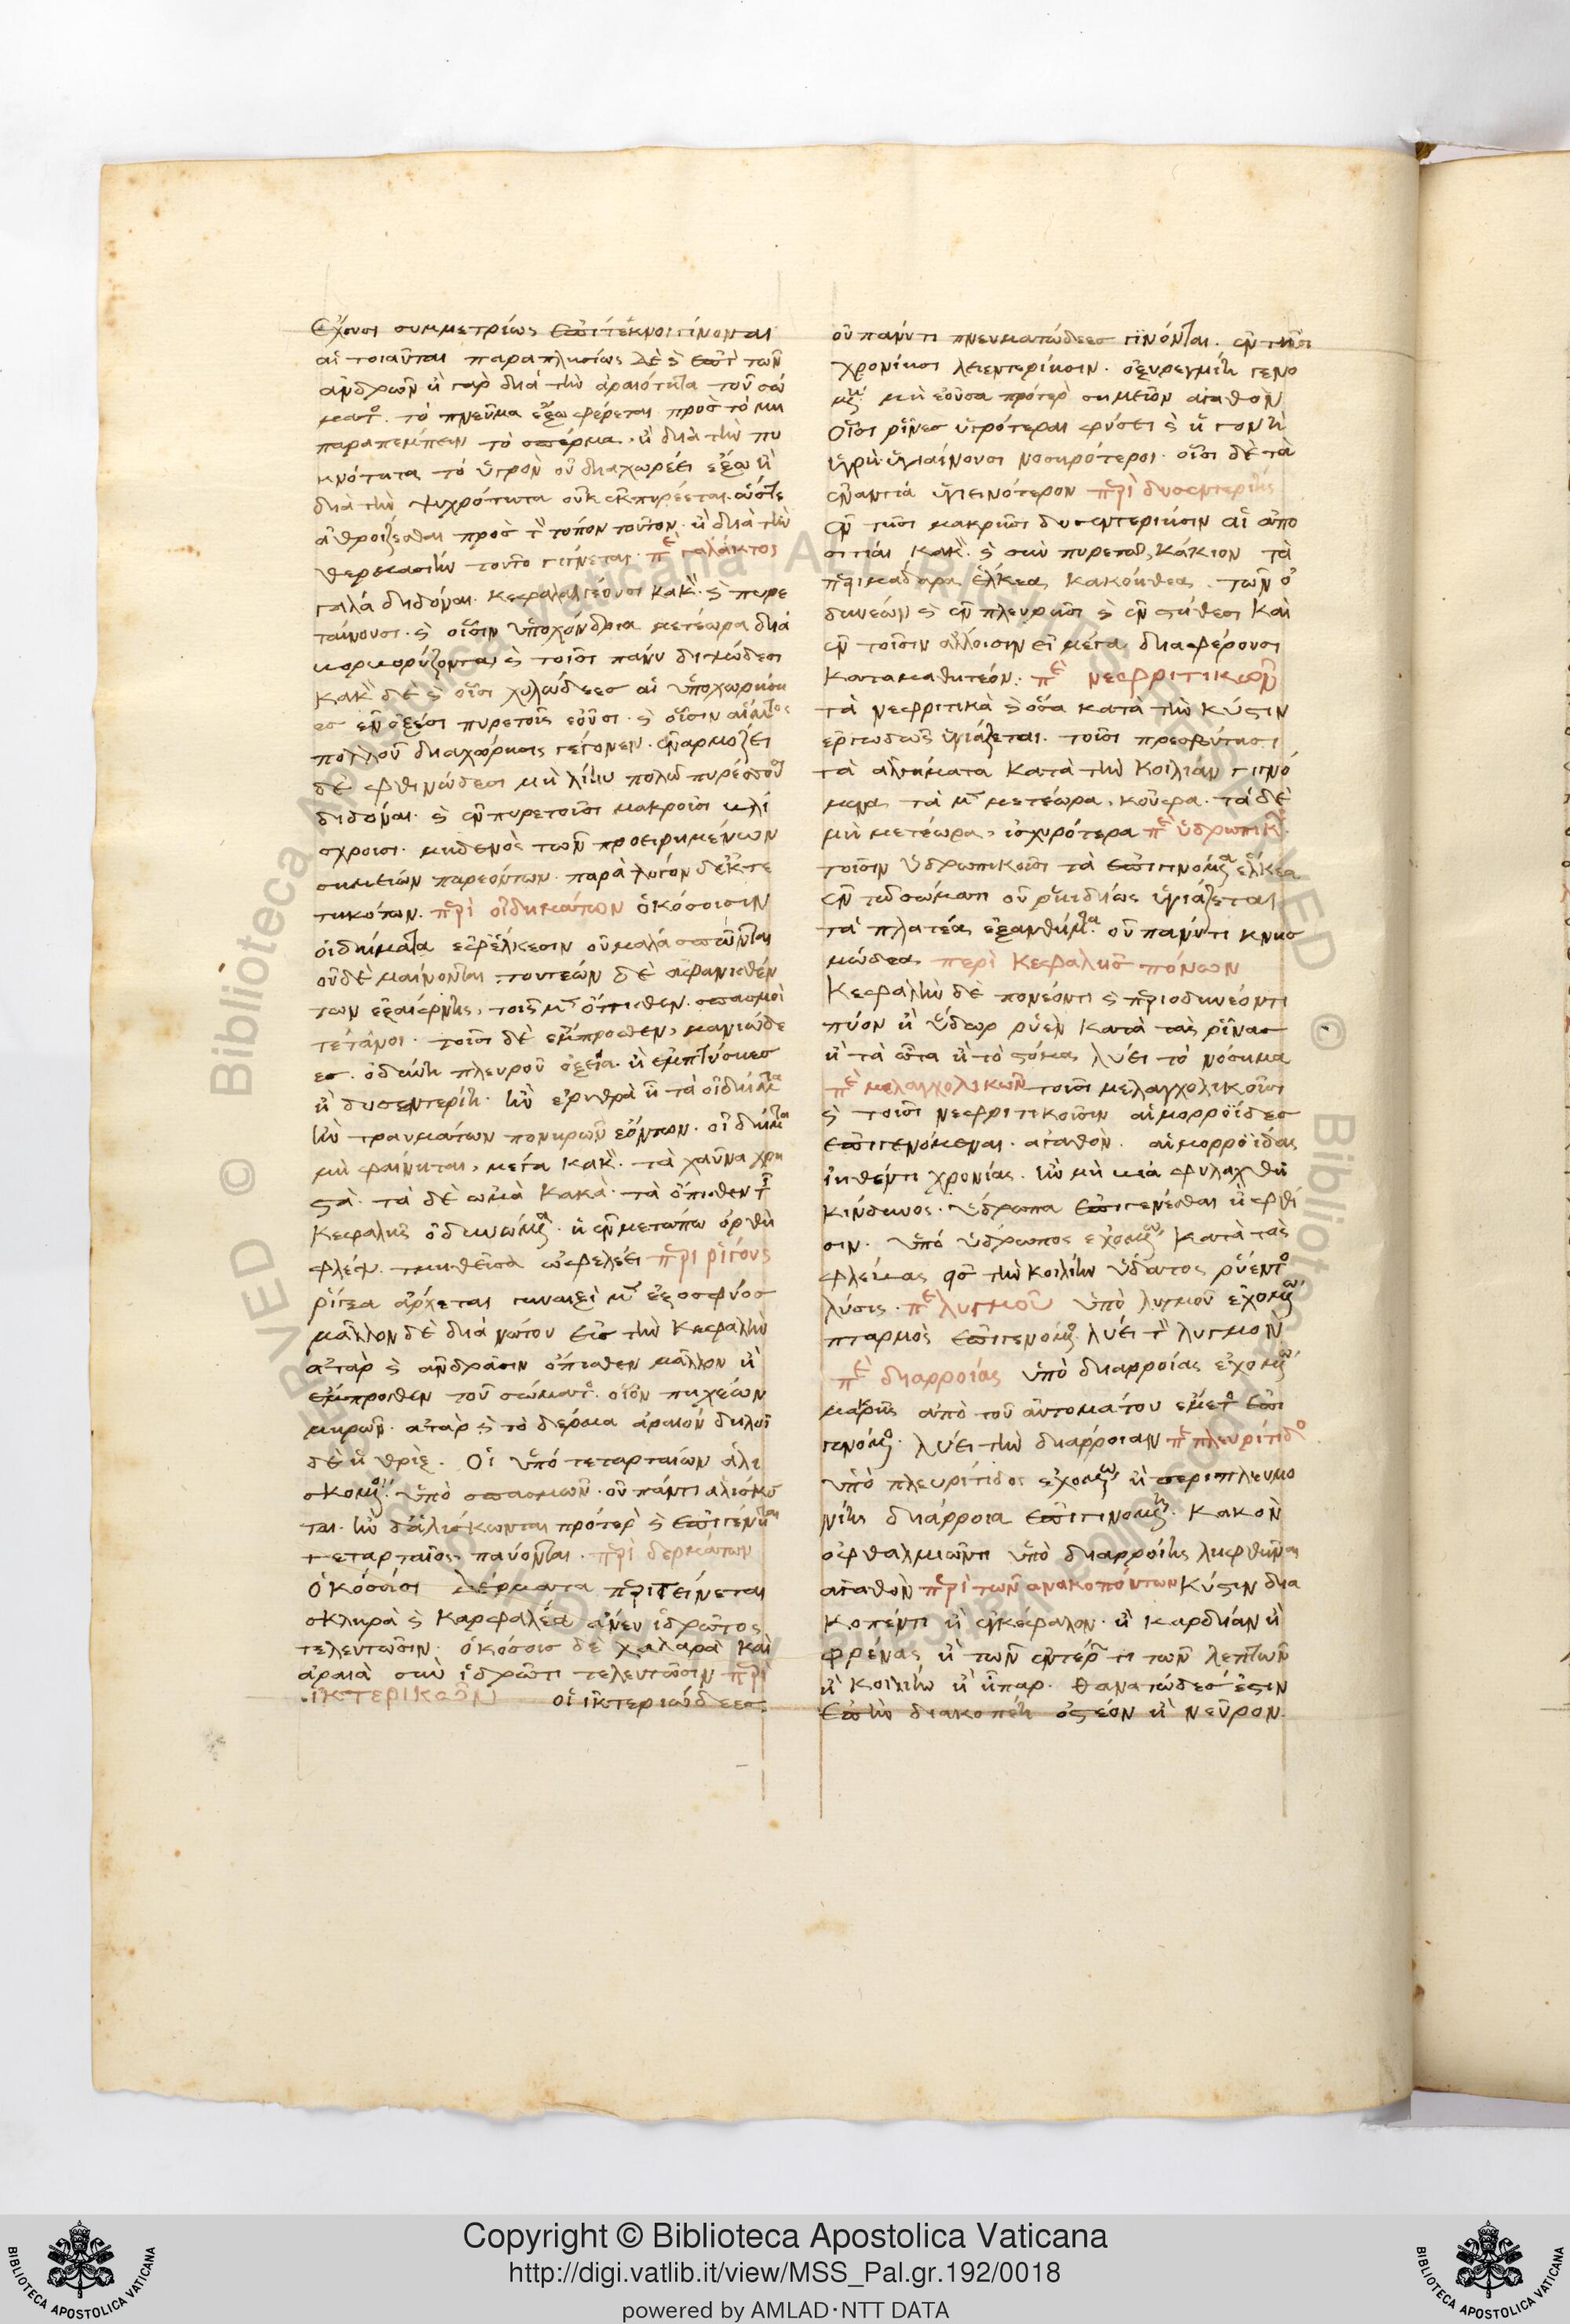 ἔχουσι συμμετρίως ἐπίτεκνοι γίνονται
αἱ τοιαῦται παραπλησίως δὲ καὶ ἐπὶ τῶν
ἀνδρῶν ἢ γὰρ διὰ τὴν ἀραιότητα τοῦ σώ
ματος τὸ πνεῦμα ἔξω φέρεται πρὸς τὸ μὴ
παραπέμπειν τὸ σπέρμα. ἢ διὰ τὴν πυ
κνότητα τὸ ὑγρὸν οὐ διαχωρέει ἔξω ἢ
διὰ τὴν ψυχρότητα οὐκ ἐκπυρέεται ὥστε
ἀθροίζεσθαι πρὸς τὸν τόπον τοῦτον. ἢ διὰ τὴν
θερμασίην τοῦτο γίγνεται. περὶ γάλακτος
γάλα διδόναι. κεφαλαλγέουσι κακόν. καὶ πυρε
ταίνουσι. καὶ οἷσιν ὑποχόνδρια μετέωρα δια
μορμορύζοντα, καὶ τοῖσι πάνυ διψώδεσι
κακὸν δὲ καὶ οἷσι χολώδεες αἱ ὑποχωρήσι
ες ἐν ὀξέσι πυρετοῖς ἐοῦσι. καὶ οἷσιν αἵματος
πολλοῦ διαχώρησις γέγονεν. ἐναρμόζει
δὲ φθινώδεσι μὴ λίην πολλῷ πυρέσσουσι
διδόναι. καὶ ἐν πυρετοῖσι μακροῖσι βλη
χροῖσι. μηδενὸς τῶν προειρημένων
σημείων παρεόντων. παρὰ λόγον δὲ ἐκτε
τηκότων. περὶ οἰδημάτων ὁκόσοισιν
οἰδήματα ἐφ' ἕλκεσιν οὐ μάλα σπῶνται
οὐδὲ μαίνονται. τουτέων δὲ ἀφανισθέν
των ἐξαίφνης, τοῖς μὲν ὄπισθεν. σπασμοὶ
τέτανοι. τοῖσι δὲ ἔμπροσθεν, μανιώδε
ες. ὀδύνη πλευροῦ ὀξεῖα. ἢ ἐμπύησις
ἢ δυσεντερίη. ἢν ἐρυθρὰ ᾖ τὰ οἰδήματα
ἢν τραυμάτων πονηρῶν ἐόντων. οἰδήματα
μὴ φαίνηται, μέγα κακόν. τὰ χαῦνα χρη
στὰ. τὰ δὲ ὠμὰ κακὰ. τὰ ὄπισθεν τῆς
κεφαλῆς ὀδυνώμενα. ἡ ἐν μετώπῳ ὀρθὴ
φλέψ. τμηθεῖσα ὠφελέει περὶ ῥίγους
ῥίγεα ἄρχεται γυναιξὶ μὲν ἐξ ὀσφύος
μᾶλλον δὲ διὰ νώτου εἰς τὴν κεφαλὴν
ἀτὰρ καὶ ἀνδράσιν ὄπισθεν μᾶλλον ἢ
ἔμπροσθεν τοῦ σώματος. οἷον πήχεων
μηρῶν. ἀτὰρ καὶ τὸ δέρμα ἀραιόν δηλοῖ
δὲ ἡ θρίξ. Οἱ ὑπὸ τεταρταίων ἁλι
σκόμενοι. ὑπὸ σπασμῶν. οὐ πάνυ ἁλίσκον
ται. ἢν δὲ ἁλίσκωνται πρότερον καὶ ἐπιγένηται
τεταρταῖος, παύονται. περὶ δερμάτων
ὁκόσοισι δέρματα περιτείνεται
σκληρὰ καὶ καρφαλέα ἄνευ ἱδρῶτος
τελευτῶσιν. ὁκόσοισι δὲ χαλαρὰ καὶ
ἀραιὰ σὺν ἱδρῶτι τελευτῶσιν περὶ
ἰκτερικῶν οἱ ἰκτεριώδεες
οὐ πάνυ τι πνευματώδεες γίνονται. ἐν τῇσι
χρονίῃσι λειεντερίῃσιν. ὀξυρεγμίη γενο
μένη μὴ ἐοῦσα πρότερον σημεῖον ἀγαθὸν
οἷσι ῥῖνες ὑγρότεραι φύσει καὶ ἡ γονὴ
ὑγρὴ ὑγιαίνουσι νοσηρότεροι. οἷσι δὲ τὰ
ἐναντία ὑγιεινότερον περὶ δυσεντερίης
ἐν τῇσι μακρῇσι δυσεντερίῃσιν αἱ ἀπο
σιτίαι κακόν. καὶ σὺν πυρετῷ, κάκιον τὰ
περιμάδαρα ἕλκεα κακοήθεα. τῶν ὀ
δυνέων καὶ ἐν πλευρῇσι καὶ ἐν στήθεσι καὶ
ἐν τοῖσιν ἄλλοισιν εἰ μέγα διαφέρουσι
καταμαθητέον: περὶ νεφριτικῶν
τὰ νεφριτικὰ καὶ ὅσα κατὰ τὴν κύστιν
ἐργωδῶς ὑγιάζεται. τοῖσι πρεσβύτῃσι
τὰ ἀλγήματα κατὰ τὴν κοιλίαν γιγνό
μενα τὰ μὲν μετέωρα, κοῦφα. τὰ δὲ
μὴ μετέωρα, ἰσχυρότερα περὶ ὑδρωπικῶν
τοῖσιν ὑδρωπικοῖσι τὰ ἐπιγινόμενα ἕλκεα
ἐν τῷ σώματι οὐ ῥηιδίως ὑγιάζεται
τὰ πλατέα ἐξανθήματα οὐ πάνυ τι κνησ
μώδεα περὶ κεφαλῆς πόνων
Κεφαλὴν δὲ πονέοντι καὶ περιοδυνέοντι
πύον ἢ ὕδωρ ῥυὲν κατὰ τὰς ῥῖνας
ἢ τὰ ὦτα ἢ τὸ στόμα, λύει τὸ νόσημα
περὶ μελαγχολικῶν τοῖσι μελαγχολικοῖσι
καὶ τοῖσι νεφριτικοῖσιν αἱμορροΐδες
ἐπιγενόμεναι. ἀγαθὸν. αἱμορροΐδας
ἰηθέντι χρονίας. ἢν μὴ μία φυλαχθῇ
κίνδυνος. ὕδρωπα ἐπιγενέσθαι ἢ φθί
σιν. ὑπὸ ὕδρωπος ἐχομένῳ κατὰ τὰς
φλέβας ἐς τὴν κοιλίην ὕδατος ῥυέντος
λύσις. περὶ λυγμοῦ ὑπὸ λυγμοῦ ἐχομένῳ
πταρμὸς ἐπιγενόμενος λύει τὸν λυγμὸν
περὶ διαρροίας ὑπὸ διαρροίας ἐχομένῳ
μακρῆς ἀπὸ τοῦ αὐτομάτου ἔμετος ἐπι
γενόμενος. λύει τὴν διάρροιαν περὶ πλευρίτιδος
ὑπὸ πλευρίτιδος ἐχομένῳ ἢ περιπλευμο
νίης διάρροια ἐπιγινομένη. κακὸν
ὀφθαλμιῶντι ὑπὸ διαρροίης ληφθῆναι
ἀγαθὸν περὶ τῶν ἀνακοπόντων Κύστιν δια
κοπέντι ἢ ἐγκέφαλον. ἢ καρδίαν ἢ
φρένας ἢ τῶν ἐντέρων τι τῶν λεπτῶν
ἢ κοιλίην ἢ ἧπαρ. θανατῶδες ἐστιν
ἐπὴν διακοπέῃ ὀστέον ἢ νεῦρον.
Copyright © Biblioteca Apostolica Vaticana
http://digi.vatlib.it/view/MSS_Pal.gr.192/0018
powered by AMLAD·NTT DATA